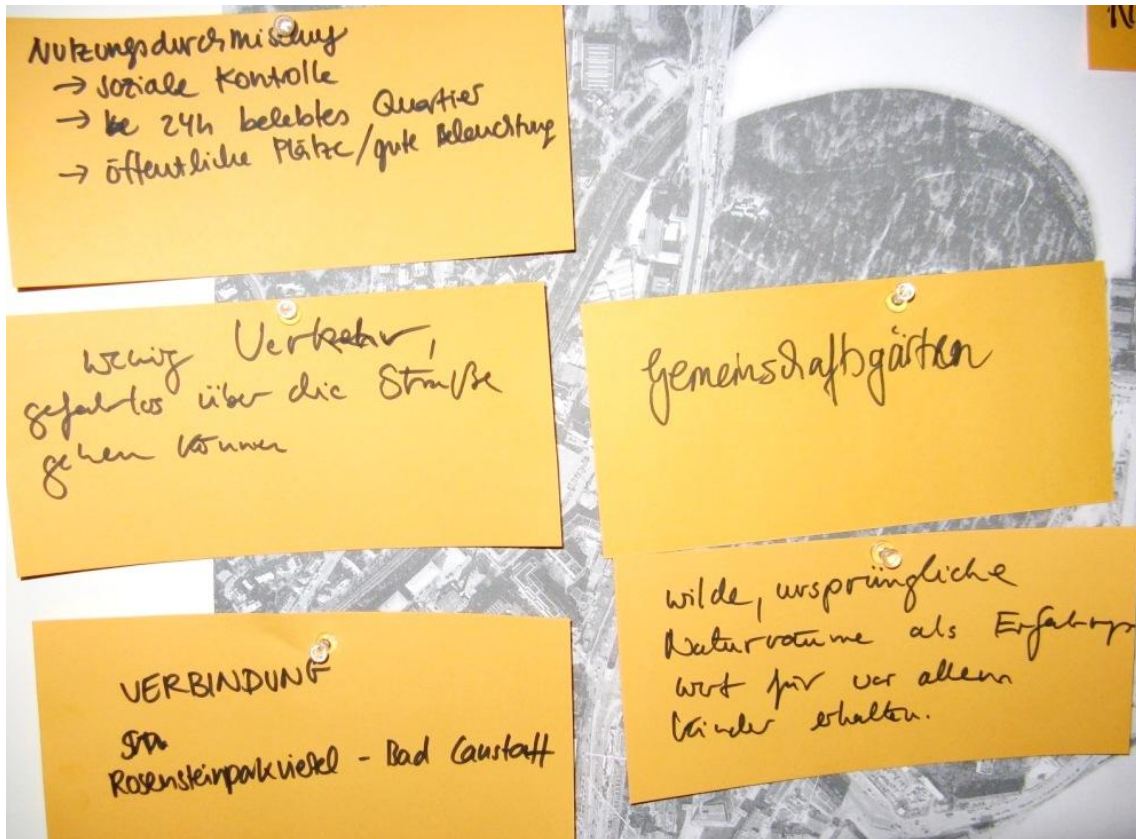 Nutzungsdurchmischung
→ soziale Kontrolle
→ 24h belebtes Quartier
→ öffentliche Plätze/gute Beleuchtung
wenig Verkehr,
gefahrlos über die Straße
gehen können
VERBINDUNG
Rosensteinparkviertel - Bad Canstatt
Gemeinschaftsgärten
wilde, ursprüngliche
Naturräume als Erfahrungs
wert für vor allem
Kinder erhalten.